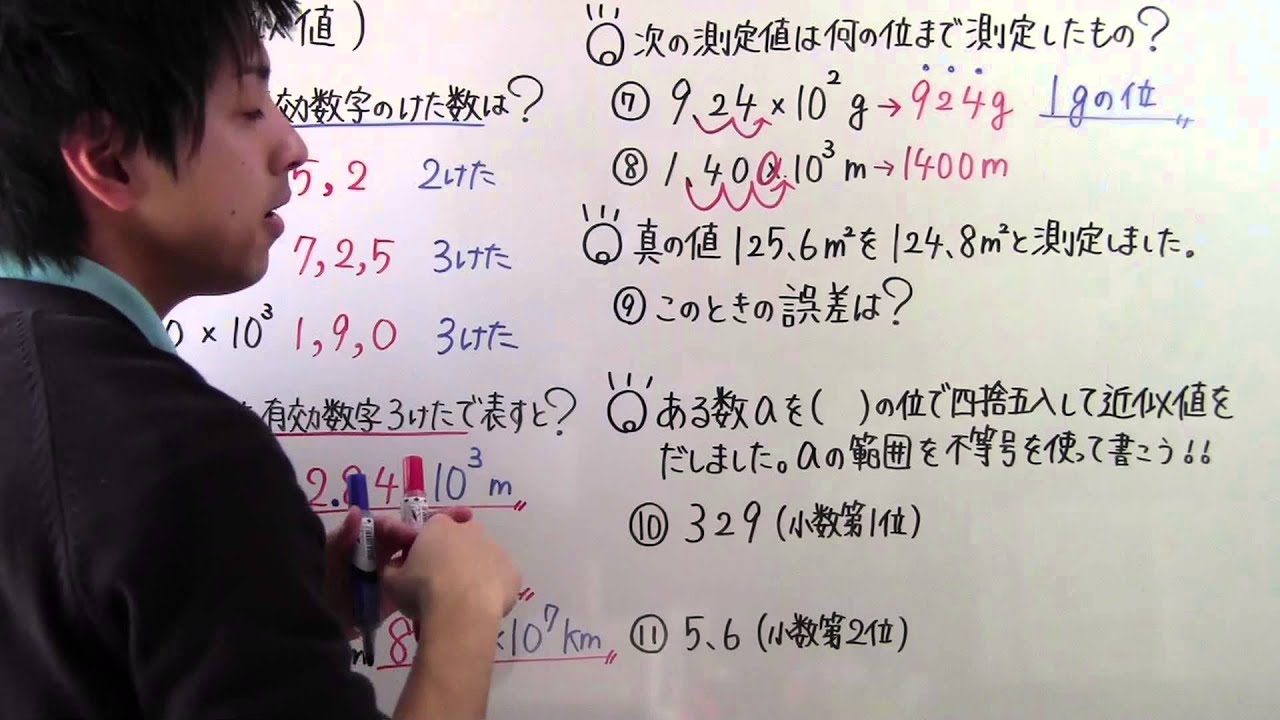 似値)
有効数字のけた数は?
5,2 2けた
7,2,5 3けた
0 × 10³ 1,9,0 3けた
有効数字3けたで表すと?
2.84 10³ m
8 ×10⁷ km
次の測定値は何の位まで測定したもの?
⑦ 9.24×10² g→924g 1gの位
⑧ 1.400×10³ m→1400m
真の値125.6m²を124.8m²と測定しました。
⑨ このときの誤差は?
ある数aを( )の位で四捨五入して近似値を
だしました。aの範囲を不等号を使って書こう!!
⑩ 329(小数第1位)
⑪ 5.6(小数第2位)